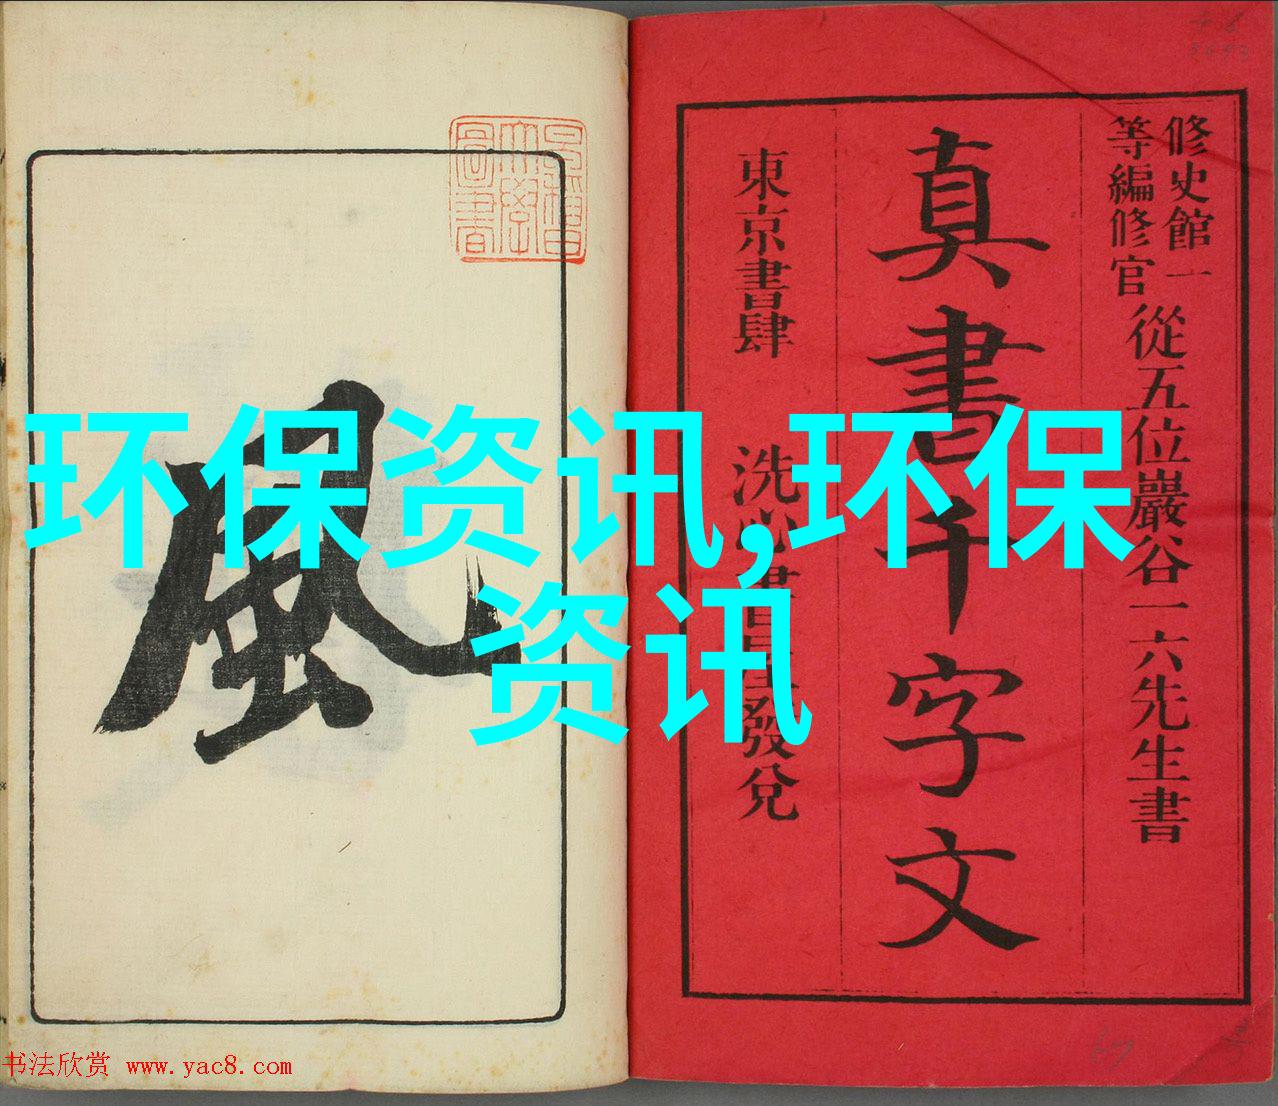 修史館一
等編修官
從五位巖谷一六先生書
真書千字文
東京書肆 洗心書屋發兌
風
环保资讯,环保
资讯
书法欣赏 www.yac8.com